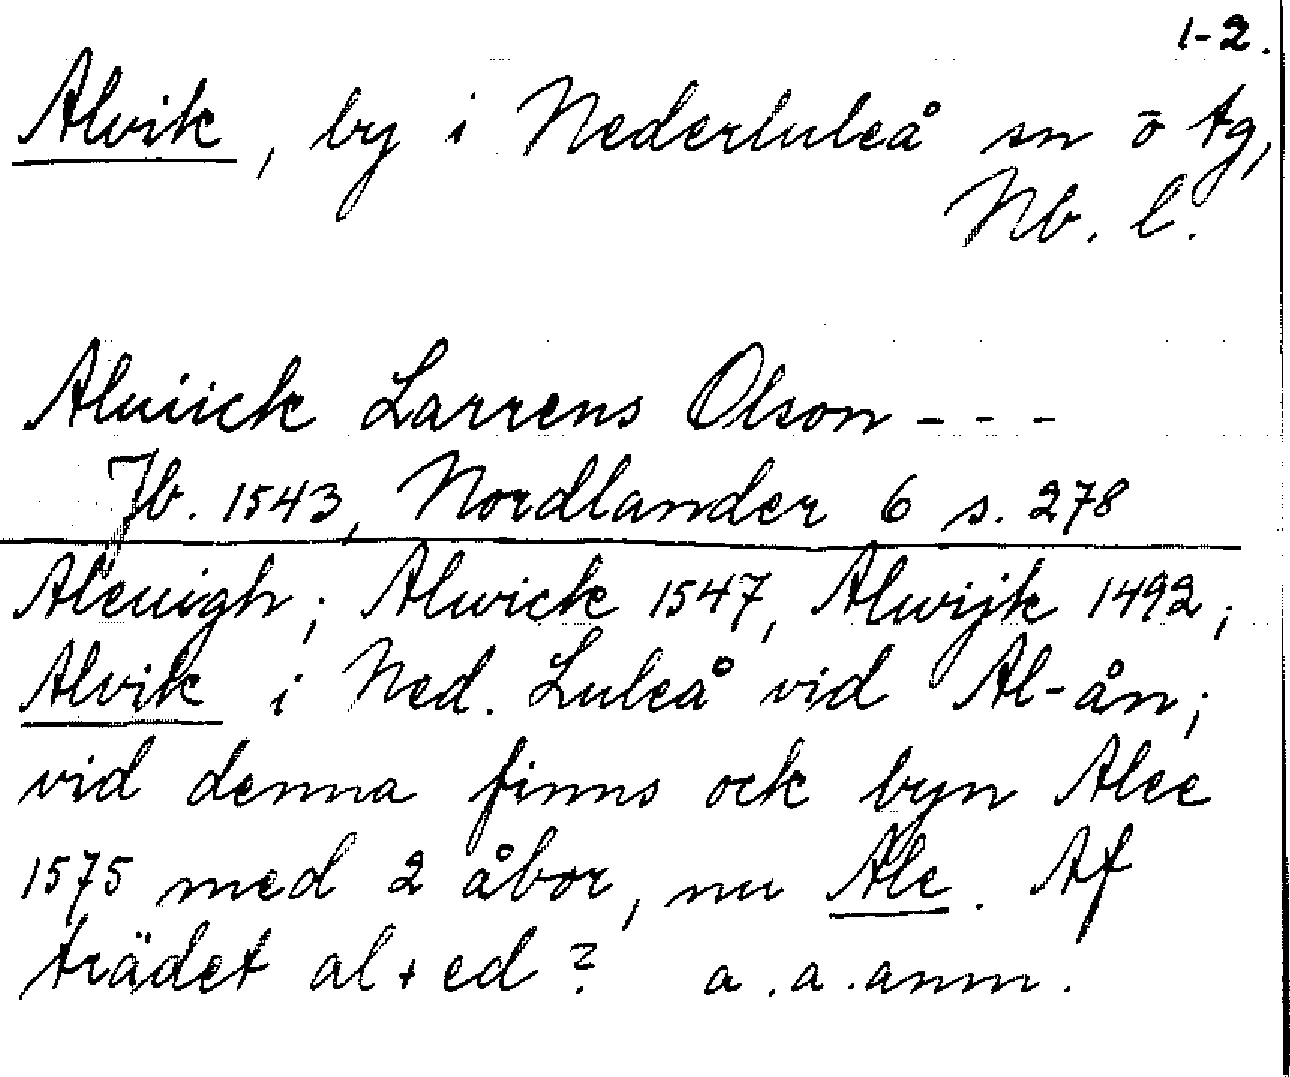 1-2.
Alvik, by i Nederluleå sn ö tg,
Nb. l.
Aluiick Larrens Olson - - -
Jb. 1543, Nordlander 6 s. 278
Aleuigh; Alwick 1547, Alwijk 1492;
Alvik i Ned. Luleå vid Al-ån;
vid denna finns ock byn Alee
1575 med 2 åbor, nu Ale. Af
trädet al + ed? a.a.anm.